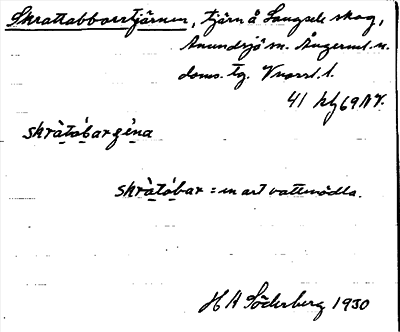 Skrattabborrtjärnen, tjärn å Långsele skog,
Anundsjö sn. Ångerml. n.
doms. tg. Vnorrl. l.
41 hk 69 NV.
skràtó̀bargéna
skràtó̀bar = en art vattenödla.
H A Söderberg 1930